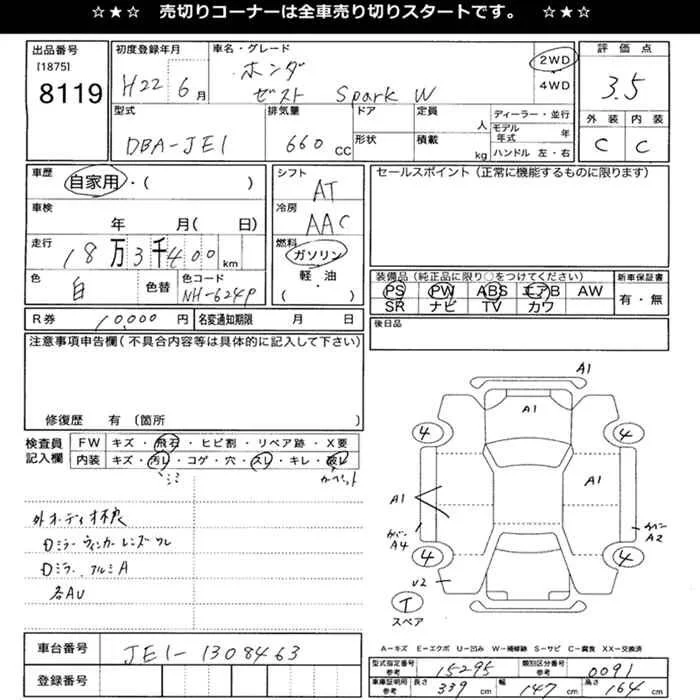 ☆★☆ 売切りコーナーは全車売り切りスタートです。 ☆★☆
出品番号 [1875] 8119
初度登録年月 H22 6月
車名・グレード ホンダ ゼスト Spark W
2WD 4WD
評価点 3.5
外装 C 内装 C
型式 DBA-JE1
排気量 660 CC
ドア 形状
定員 人 積載 kg
ディーラー・並行
モデル年式 年
ハンドル 左・右
車歴 自家用・( )
車検 年 月( 日)
走行 18万3千400km
色 白 色替 色コード NH-624P
シフト AT
冷房 AAC
燃料 ガソリン 軽・油 ( )
セールスポイント(正常に機能するものに限ります)
装備品(純正品に限り○をつけてください)
PS PW ABS エアB AW
SR ナビ TV カワ
新車保証書 有・無
後日品
R券 10,000円 名変通知期限 月 日
注意事項申告欄(不具合内容等は具体的に記入して下さい)
修復歴 有(箇所 )
検査員記入欄
FW キズ・飛石・ヒビ割・リペア跡・X要
内装 キズ・汚レ・コゲ・穴・スレ・キレ・破レ
カーペット
外オーディオ不良
Dミラーウィンカーレンズワレ
Dミラー、アルミA
各AU
A1
A1
4 4
A1
A1
カバーA4
カバーA2
4 4
U2
T
スペア
A－キズ E－エクボ U－凹み W－補修跡 S－サビ C－腐食 XX－交換済
車台番号 JE1-1308463
登録番号
型式指定番号 参考 15295 類別区分番号 参考 0091
車庫証明用 参考 長さ 339 cm 幅 147 cm 高さ 164 cm